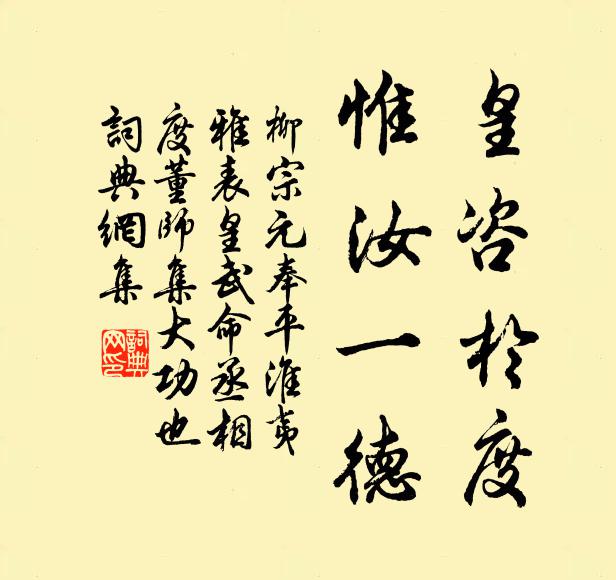 皇咨於度
惟汝一德
柳宗元奉平淮夷
雅表皇武命丞相
度董師集大功也
詞典網集
詞典
网印